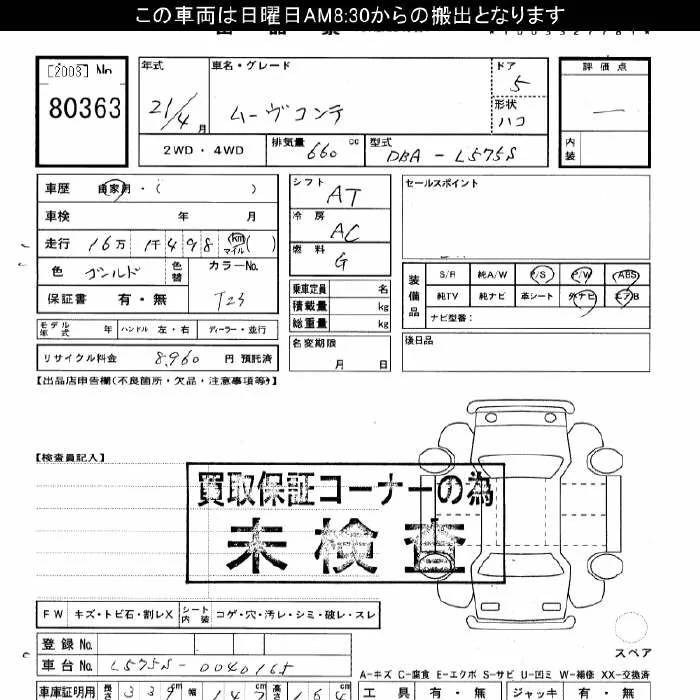 この車両は日曜日AM8:30からの搬出となります
[2003] No
80363
年式
21/4 月
車名・グレード
ムーヴコンテ
ドア
5
形状
ハコ
評価点
―
内装
2WD・4WD
排気量 660 cc
型式 DBA - L575S
車歴 自家用・( )
車検 年 月
走行 16万 1千498 km マイル ( )
色 ゴールド 色替 カラーNo.
保証書 有・無 T23
モデル年式 年 ハンドル 左・右 ディーラー・並行
リサイクル料金 8,960 円 預託済
シフト
AT
冷房
AC
燃料
G
乗車定員 名
積載量 kg
総重量 kg
名変期限
月 日
セールスポイント
装備品
S/R 純A/W P/S P/W ABS
純TV 純ナビ 革シート 外ナビ エアB
ナビ型番:
後日品
【出品店申告欄(不良箇所・欠品・注意事項等)】
【検査員記入】
買取保証コーナーの為
未検査
FW キズ・トビ石・割レX シート内装 コゲ・穴・汚レ・シミ・破レ・スレ
スペア
登録No.
車台No. L575S-0040165
A-キズ C-腐食 E-エクボ S-サビ U-凹ミ W-補修 XX-交換済
車庫証明用 長さ 339 幅 147 高さ 164
工具 有・無 ジャッキ 有・無